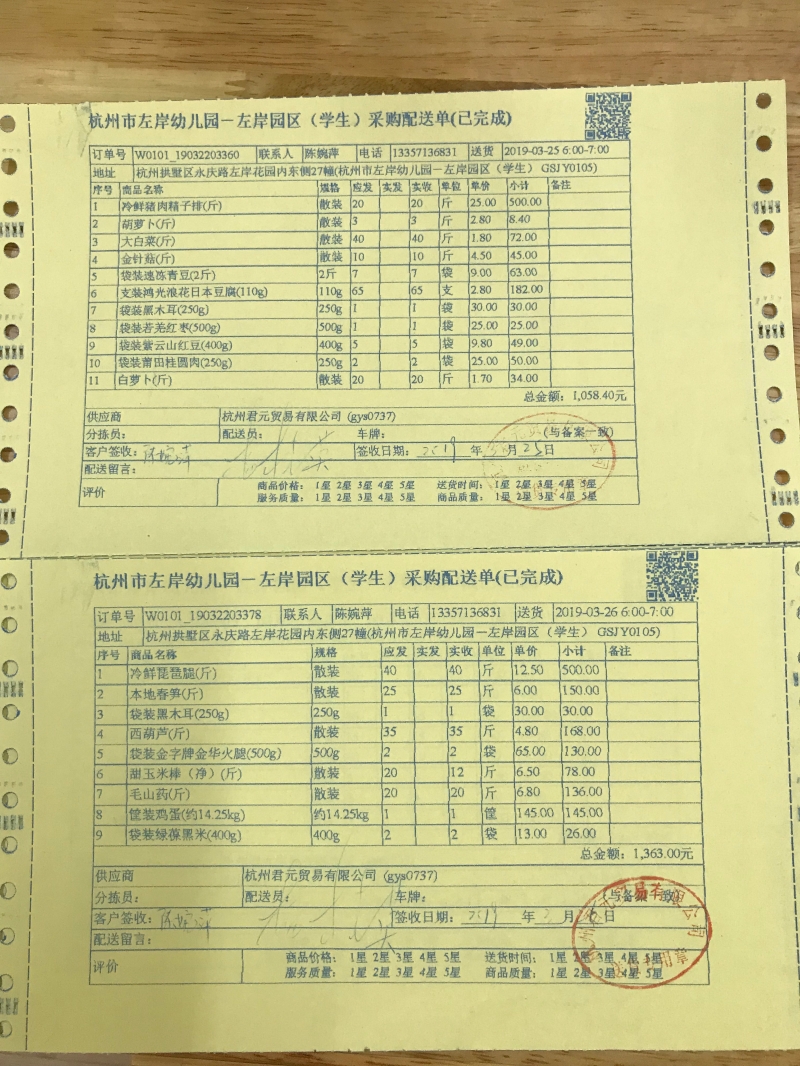 杭州市左岸幼儿园－左岸园区（学生）采购配送单(已完成)
订单号 W0101_19032203360 联系人 陈婉萍 电话 13357136831 送货 2019-03-25 6:00-7:00
地址 杭州拱墅区永庆路左岸花园内东侧27幢(杭州市左岸幼儿园－左岸园区（学生） GSJY0105)
序号 商品名称 规格 应发 实发 实收 单位 单价 小计 备注
1 冷鲜猪肉精子排(斤) 散装 20 20 斤 25.00 500.00
2 胡萝卜(斤) 散装 3 3 斤 2.80 8.40
3 大白菜(斤) 散装 40 40 斤 1.80 72.00
4 金针菇(斤) 散装 10 10 斤 4.50 45.00
5 袋装速冻青豆(2斤) 2斤 7 7 袋 9.00 63.00
6 支装鸿光浪花日本豆腐(110g) 110g 65 65 支 2.80 182.00
7 袋装黑木耳(250g) 250g 1 1 袋 30.00 30.00
8 袋装若羌红枣(500g) 500g 1 1 袋 25.00 25.00
9 袋装紫云山红豆(400g) 400g 5 5 袋 9.80 49.00
10 袋装莆田桂圆肉(250g) 250g 2 2 袋 25.00 50.00
11 白萝卜(斤) 散装 20 20 斤 1.70 34.00
总金额：1,058.40元
供应商 杭州君元贸易有限公司 (gys0737)
分拣员： 配送员： 车牌： (与备案一致)
客户签收：陈婉萍 签收日期：2019 年 月 25日
配送留言：
评价 商品价格： 1星 2星 3星 4星 5星 送货时间： 1星 2星 3星 4星 5星
服务质量： 1星 2星 3星 4星 5星 商品质量： 1星 2星 3星 4星 5星
杭州市左岸幼儿园－左岸园区（学生）采购配送单(已完成)
订单号 W0101_19032203378 联系人 陈婉萍 电话 13357136831 送货 2019-03-26 6:00-7:00
地址 杭州拱墅区永庆路左岸花园内东侧27幢(杭州市左岸幼儿园－左岸园区（学生） GSJY0105)
序号 商品名称 规格 应发 实发 实收 单位 单价 小计 备注
1 冷鲜琵琶腿(斤) 散装 40 40 斤 12.50 500.00
2 本地春笋(斤) 散装 25 25 斤 6.00 150.00
3 袋装黑木耳(250g) 250g 1 1 袋 30.00 30.00
4 西葫芦(斤) 散装 35 35 斤 4.80 168.00
5 袋装金字牌金华火腿(500g) 500g 2 2 袋 65.00 130.00
6 甜玉米棒（净）(斤) 散装 20 12 斤 6.50 78.00
7 毛山药(斤) 散装 20 20 斤 6.80 136.00
8 筐装鸡蛋(约14.25kg) 约14.25kg 1 1 筐 145.00 145.00
9 袋装绿葆黑米(400g) 400g 2 2 袋 13.00 26.00
总金额：1,363.00元
供应商 杭州君元贸易有限公司 (gys0737)
分拣员： 配送员： 车牌： (与备案一致)
客户签收：陈婉萍 签收日期：2019 年 3 月 日
配送留言：
评价 商品价格： 1星 2星 3星 4星 5星 送货时间： 1星 2星 3星 4星 5星
服务质量： 1星 2星 3星 4星 5星 商品质量： 1星 2星 3星 4星 5星